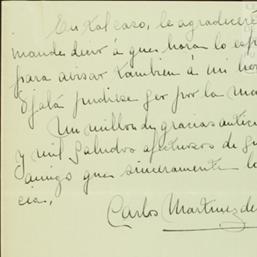 En tal caso, le agradeceré
mande decir á que hora lo esp
para avisar tambien á mi her
Ojalá pudiese ser por la ma
Un millon de gracias antici
y mil saludos afectuosos de su
amigo que sinceramente lo
cia,
Carlos Martinez de